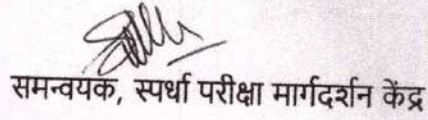 समन्वयक, स्पर्धा परीक्षा मार्गदर्शन केंद्र